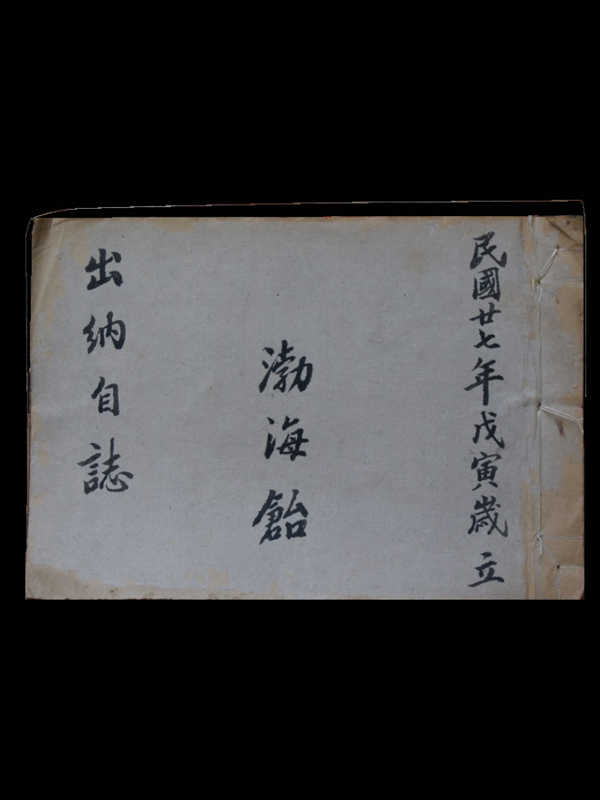 民國廿七年戊寅歲立
渤海飴
出納自誌